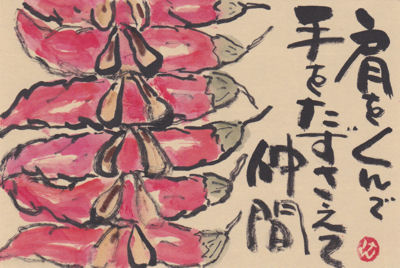 肩をくんで
手をたずさえて
仲間